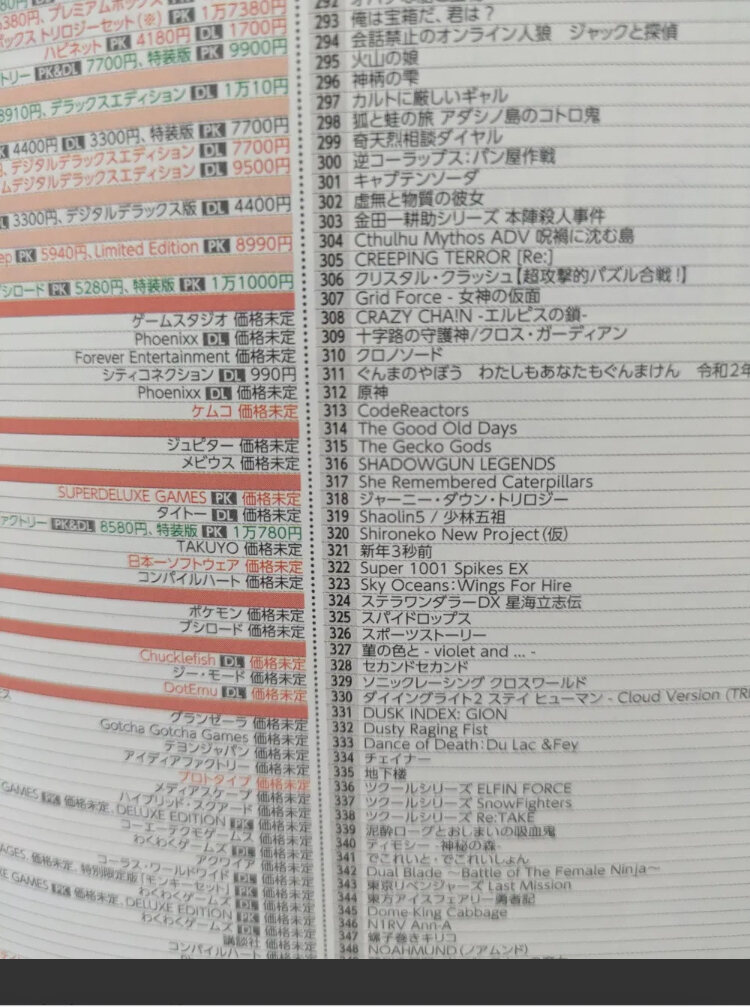 380円、プレミアムボックス PK 1万7380円
ボックス トリロジーセット(※) PK 1万7380円
ハピネット PK 4180円 DL 1700円
トリー PK&DL 7700円、特装版 PK 9900円
8910円、デラックスエディション DL 1万10円
4400円 DL 3300円、特装版 PK 7700円
デジタルデラックスエディション DL 7700円
ムデジタルデラックスエディション DL 9500円
DL 3300円、デジタルデラックス版 DL 4400円
ep PK 5940円、Limited Edition PK 8990円
ブシロード PK 5280円、特装版 PK 1万1000円
ゲームスタジオ 価格未定
Phoenixx DL 価格未定
Forever Entertainment 価格未定
シティコネクション DL 990円
Phoenixx DL 価格未定
ケムコ 価格未定
ジュピター 価格未定
メビウス 価格未定
SUPERDELUXE GAMES PK 価格未定
タイトー DL 価格未定
ファクトリー PK&DL 8580円、特装版 PK 1万780円
TAKUYO 価格未定
日本一ソフトウェア 価格未定
コンパイルハート 価格未定
ポケモン 価格未定
ブシロード 価格未定
Chucklefish DL 価格未定
ジー・モード DL 価格未定
DotEmu DL 価格未定
グランゼーラ 価格未定
Gotcha Gotcha Games 価格未定
テヨンジャパン 価格未定
アイディアファクトリー 価格未定
プロトタイプ 価格未定
メディアスケープ 価格未定
ハイブリッド・スクアード 価格未定
GAMES PK 価格未定、DELUXE EDITION PK 価格未定
コーエーテクモゲームス 価格未定
わくわくゲームズ DL 価格未定
アクワイア 価格未定
コーラス・ワールドワイド DL 価格未定
AGES、価格未定、特別限定版「モンキーセット」 PK 価格未定
わくわくゲームズ DL 価格未定
E GAMES PK 価格未定、DELUXE EDITION PK 価格未定
わくわくゲームズ DL 価格未定
講談社 価格未定
コンパイルハート 価格未定
292
293 俺は宝箱だ、君は？
294 会話禁止のオンライン人狼 ジャックと探偵
295 火山の娘
296 神柄の雫
297 カルトに厳しいギャル
298 狐と蛙の旅 アダシノ島のコトロ鬼
299 奇天烈相談ダイヤル
300 逆コーラップス:パン屋作戦
301 キャプテンソーダ
302 虚無と物質の彼女
303 金田一耕助シリーズ 本陣殺人事件
304 Cthulhu Mythos ADV 呪禍に沈む島
305 CREEPING TERROR [Re:]
306 クリスタル・クラッシュ【超攻撃的パズル合戦!】
307 Grid Force - 女神の仮面
308 CRAZY CHA!N -エルピスの鎖-
309 十字路の守護神/クロス・ガーディアン
310 クロノソード
311 ぐんまのやぼう わたしもあなたもぐんまけん 令和2年
312 原神
313 CodeReactors
314 The Good Old Days
315 The Gecko Gods
316 SHADOWGUN LEGENDS
317 She Remembered Caterpillars
318 ジャーニー・ダウン・トリロジー
319 Shaolin5 / 少林五祖
320 Shironeko New Project(仮)
321 新年3秒前
322 Super 1001 Spikes EX
323 Sky Oceans:Wings For Hire
324 ステラワンダラーDX 星海立志伝
325 スパイドロップス
326 スポーツストーリー
327 菫の色と - violet and ... -
328 セカンドセカンド
329 ソニックレーシング クロスワールド
330 ダイイングライト2 ステイ ヒューマン - Cloud Version (TRI
331 DUSK INDEX: GION
332 Dusty Raging Fist
333 Dance of Death:Du Lac &Fey
334 チェイナー
335 地下楼
336 ツクールシリーズ ELFIN FORCE
337 ツクールシリーズ SnowFighters
338 ツクールシリーズ Re:TAKE
339 泥酔ローグとおしまいの吸血鬼
340 ティモシー -神秘の森-
341 でこれいと・でこれいしょん
342 Dual Blade ～Battle of The Female Ninja～
343 東京リベンジャーズ Last Mission
344 東方アイスフェアリー勇者記
345 Dome-King Cabbage
346 N1RV Ann-A
347 螺子巻きキリコ
348 NOAHMUND(ノアムンド)